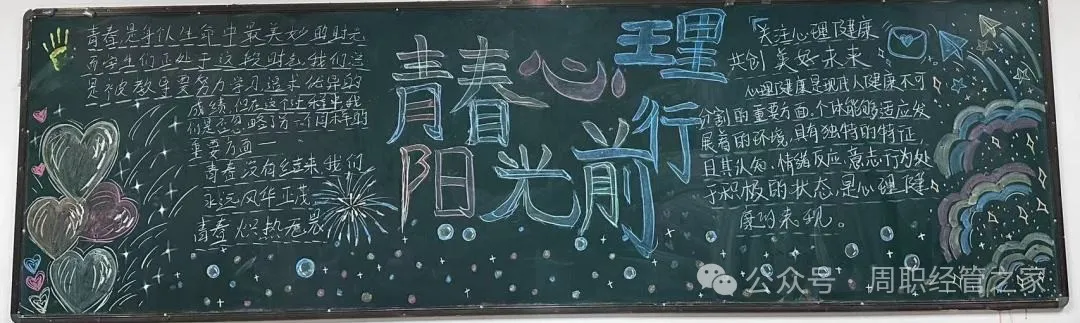 青春是年队生命中最美妙的时光
而学生们正处于这段时光，我们总
是被教导要努力学习，追求优异的
成绩，但在这个过程中我
们是否忽略了另一个同样的
重要方面一
青春没有结束，我们
永远风华正茂，
青春炽热无畏
青春心理
阳光前行
「关注心理健康
共创美好未来
心理健康是现代人健康不可
分割的重要方面，个体能够适应发
展着的环境，具有独特的特征，
且其认知，情绪反应，意志行为处
于积极的状态，是心理健
康的表现。
公众号 周职经管之家